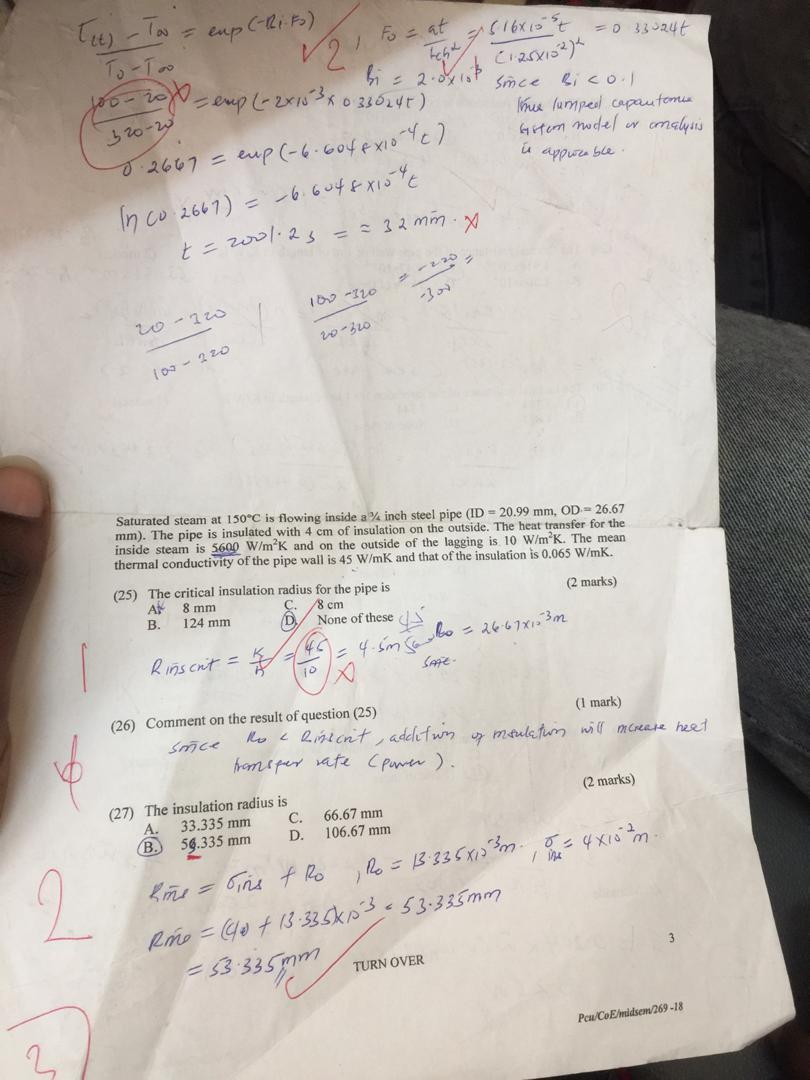 T(t) - T∞ = exp(-Bi.Fo)
T0 - T∞
✓2, Fo = αt = 5.16x10⁻⁵t = 0.33024t
Lch² (1.25x10⁻²)²
Bi = 2.0x10⁻³ since Bi < 0.1
thus lumped capacitance
system model or analysis
is applicable.
100 - 20 = exp(-2x10⁻³ x 0.33024t)
320-20
0.2667 = exp(-6.6048x10⁻⁴t)
ln(0.2667) = -6.6048x10⁻⁴t
t = 2001.2s = ≈ 32min. X
20 - 320 | 100 - 320 = -220 =
100 - 320 20 - 320 -300
Saturated steam at 150°C is flowing inside a ¾ inch steel pipe (ID = 20.99 mm, OD = 26.67
mm). The pipe is insulated with 4 cm of insulation on the outside. The heat transfer for the
inside steam is 5600 W/m²K and on the outside of the lagging is 10 W/m²K. The mean
thermal conductivity of the pipe wall is 45 W/mK and that of the insulation is 0.065 W/mK.
(25) The critical insulation radius for the pipe is (2 marks)
A. 8 mm C. 8 cm
B. 124 mm D. None of these
Rinscrit = K = 45 = 4.5m Ro = 26.67x10⁻³m
h 10 X
1
(26) Comment on the result of question (25) (1 mark)
since Ro < Rinscrit, addition of insulation will increase heat
transfer rate (power).
(27) The insulation radius is (2 marks)
A. 33.335 mm C. 66.67 mm
B. 53.335 mm D. 106.67 mm
Rins = σins + Ro, Ro = 13.335x10⁻³m, σins = 4x10⁻²m.
2
Rins = (40 + 13.335)x10⁻³ = 53.335mm
= 53.335mm
TURN OVER
3
Pcu/CoE/midsem/269 -18
3